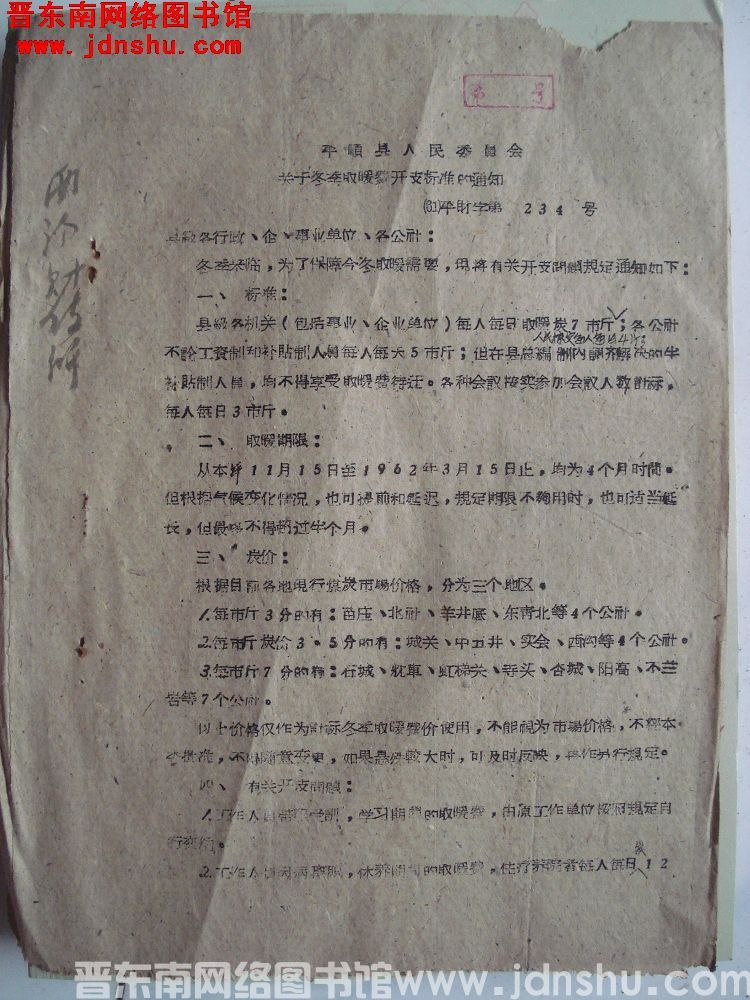 晋东南网络图书馆
www.jdnshu.com
第 号
平順县人民委員会
关于冬季取暖費开支标准的通知
(61)平財字第 234 号
县級各行政、企、事业单位、各公社：
冬季来临，为了保障今冬取暖需要，現将有关开支問題規定通知如下：
一、 标准：
县級各机关（包括事业、企业单位）每人每日取暖炭7市斤；各公社
不論工資制和补貼制人員每人每天5市斤；但在县总編制内調剂解决的半
补貼制人員，均不得享受取暖費待迂。各种会議按实参加会議人数計标，
每人每日3市斤。
二、 取暖期限：
从本年11月15日至1962年3月15日止，均为4个月时間。
但根据气候变化情况，也可提前和延迟，規定期限不夠用时，也可适当延
长，但最多不得超过半个月。
三、 炭价：
根据目前各地現行煤炭市場价格，分为三个地区。
1.每市斤3分的有：苗庄、北社、羊井底、东青北等4个公社。
2.每市斤炭价3.5分的有：城关、中五井、实会、西沟等4个公社。
3.每市斤7分的有：石城、 、虹梯关、寺头、杏城、阳高、不兰
岩等7个公社。
以上价格仅作为計标冬季取暖費价使用，不能視为市場价格，不經本
委批准，不得随意变更，如果悬殊較大时，可及时反映，再作另行規定。
四、 有关开支問題：
1.工作人員 受訓，学习期間的取暖費，由原工作单位按照規定自
行
2.工作人員因病 ，休养期間的取暖費，住疗养院者每人每日12
晋东南网络图书馆www.jdnshu.com